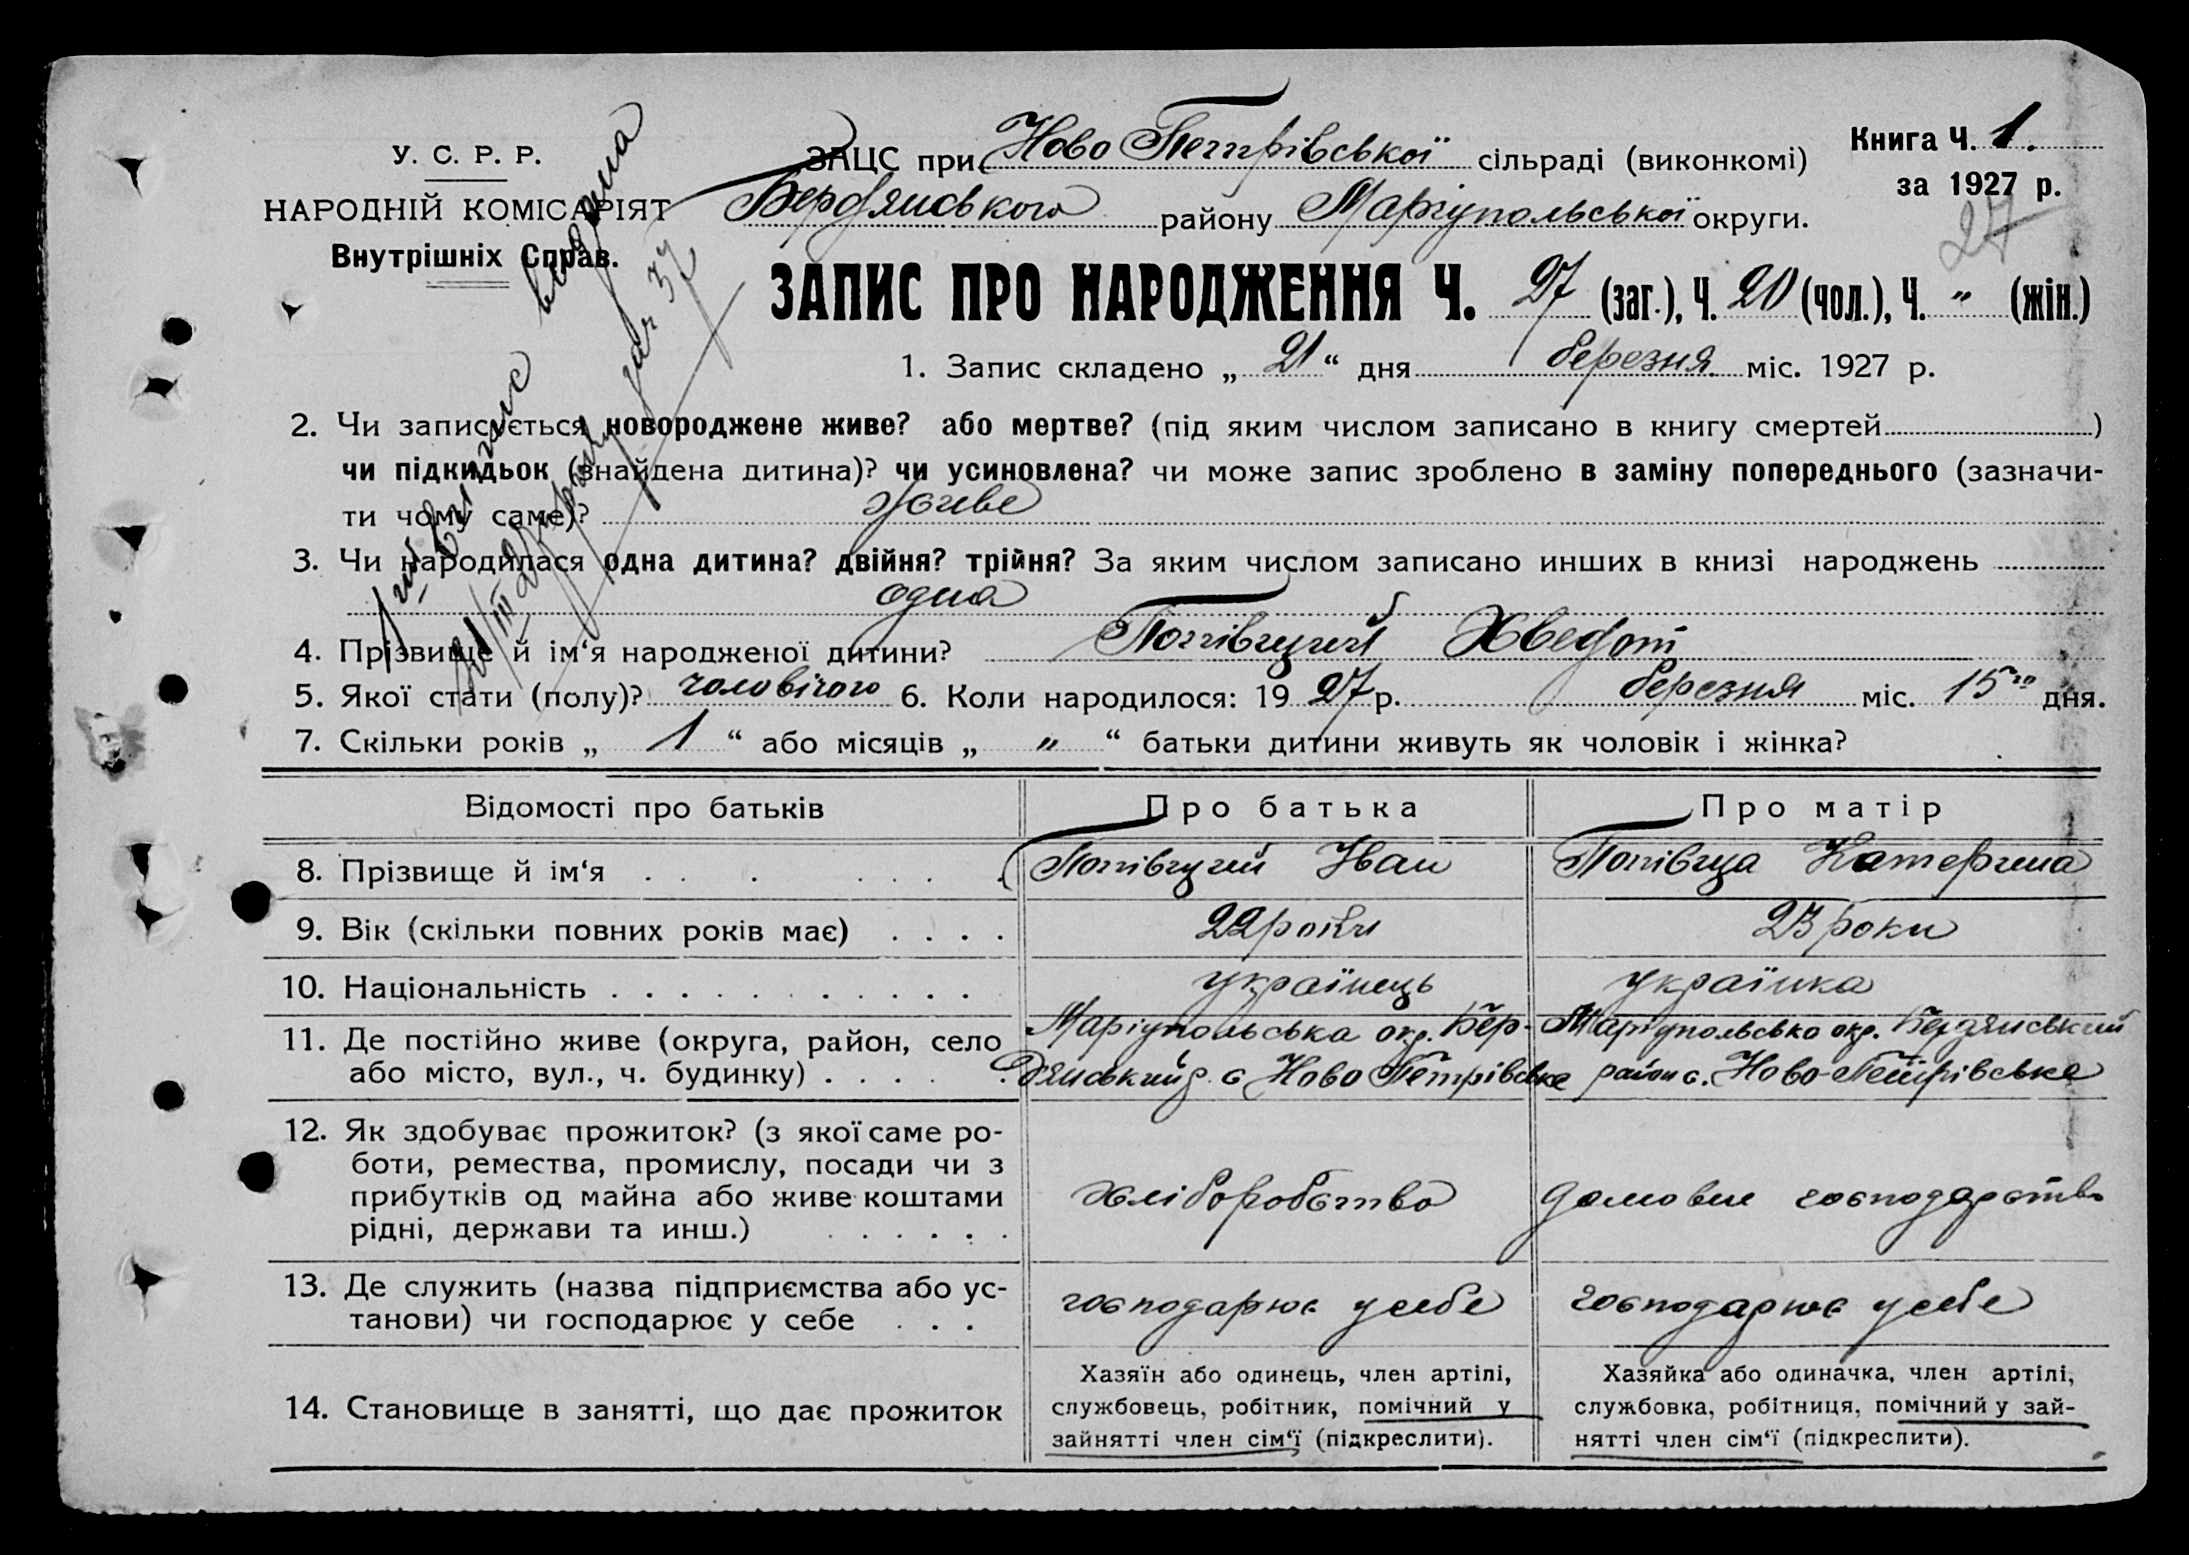 У. С. Р. Р.
НАРОДНІЙ КОМІСАРІЯТ
Внутрішніх Справ.
ЗАЦС при Ново Петрівської сільраді (виконкомі)
Бердянського району Маріупольської округи.
Книга Ч. 1.
за 1927 р.
27
ЗАПИС ПРО НАРОДЖЕННЯ Ч. 27 (заг.), Ч. 20 (чол.), Ч. „ (жін.)
1. Запис складено „ 21 “ дня березня міс. 1927 р.
2. Чи записується новороджене живе? або мертве? (під яким числом записано в книгу смертей )
чи підкидьок (знайдена дитина)? чи усиновлена? чи може запис зроблено в заміну попереднього (зазначи-
ти чому саме)? живе
3. Чи народилася одна дитина? двійня? трійня? За яким числом записано инших в книзі народжень
одна
4. Прізвище й ім‘я народженої дитини? Попівщий Хведот
5. Якої стати (полу)? чоловічого 6. Коли народилося: 19 27 р. березня міс. 15го дня.
7. Скільки років „ 1 “ або місяців „ „ “ батьки дитини живуть як чоловік і жінка?
Відомості про батьків Про батька Про матір
8. Прізвище й ім‘я . . . . . . Попівщий Іван Попівща Катерина
9. Вік (скільки повних років має) . . . . 22 роки 23 роки
10. Національність . . . . . . . . . . . українець українка
11. Де постійно живе (округа, район, село Маріупольська окр. Бер- Маріупольсько окр. Бердянський
або місто, вул., ч. будинку) . . . . . . дянський р. с Ново Петрівська район с. Ново-Петрівська
12. Як здобуває прожиток? (з якої саме ро-
боти, ремества, промислу, посади чи з
прибутків од майна або живе коштами хліборобство домове господарство
рідні, держави та инш.) . . . . . .
13. Де служить (назва підприємства або ус-
танови) чи господарює у себе . . . господарює у себе господарює у себе
Хазяїн або одинець, член артілі, Хазяйка або одиначка, член артілі,
14. Становище в занятті, що дає прожиток службовець, робітник, помічний у службовка, робітниця, помічний у зай-
зайнятті член сім‘ї (підкреслити). нятті член сім‘ї (підкреслити).